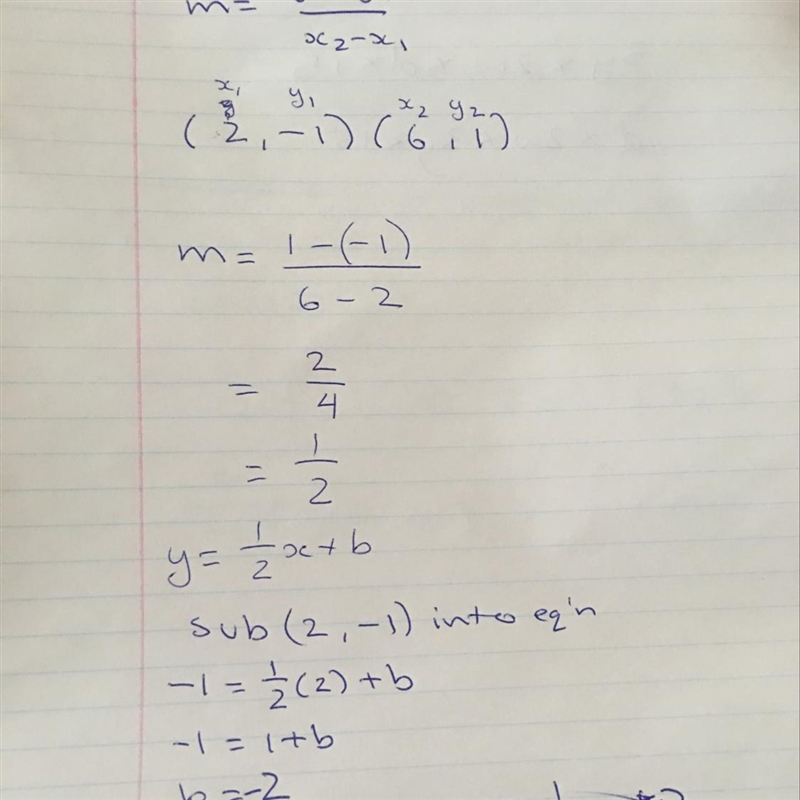 m=
x₂-x₁
x₁ y₁ x₂ y₂
(2,-1)(6,1)
m= 1-(-1)
6-2
= 2
4
= 1
2
y= 1/2 x+b
sub (2,-1) into eq'n
-1 = 1/2 (2) + b
-1 = 1+b
b=-2